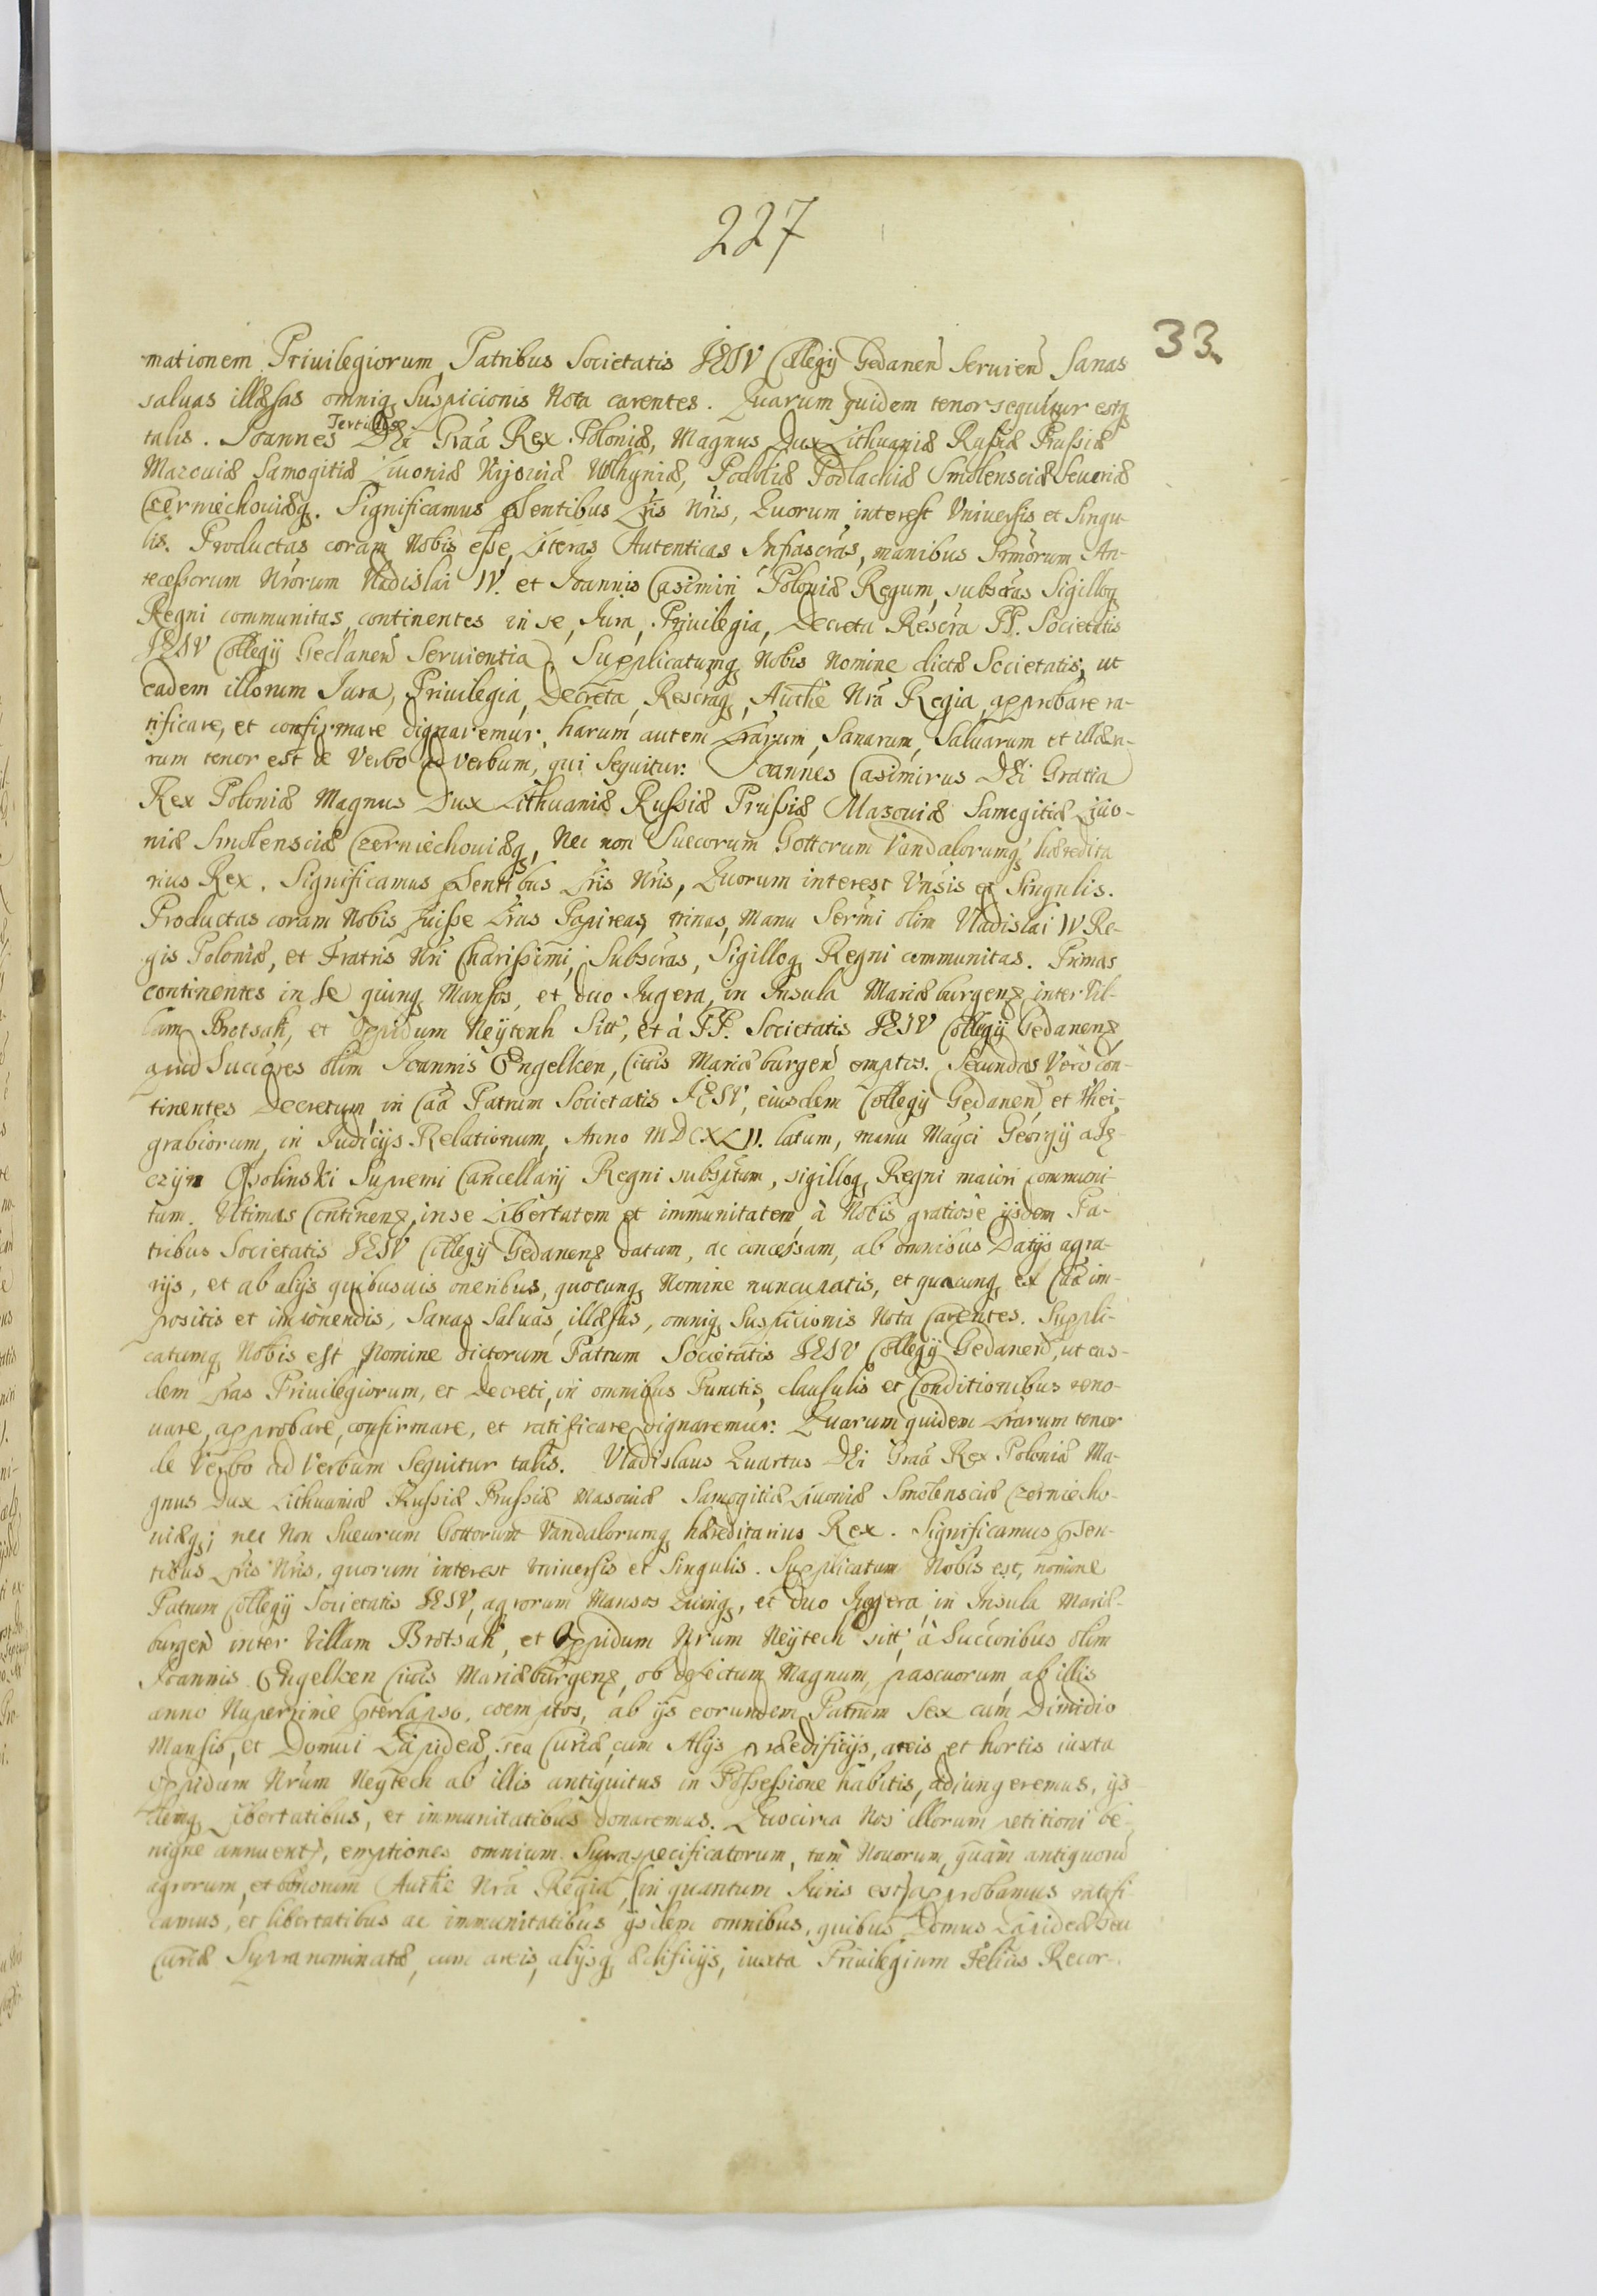 227
33
mationem Priuilegiorum Patribus Societatis JESV Collegij Gedanen Seruien Sanas
saluas illæsas omniq Suspicionis Nota carentes. Quarum quidem tenor sequitur estq
Tertius
talis. Joannes DEi Graâ Rex Poloniæ, Magnus Dux Lithuaniæ Russiæ Prussiæ
Mazouiæ Samogitiæ Liuoniæ Kijouiæ Volhyniæ, Podoliæ Podlachiæ Smolensciæ Seueriæ
Czerniechouiæq. Significamus pñtibus Lris Nris, Quorum interest Vniuersis et Singu-
lis. Productas coram Nobis esse Literas Autenticas Infrascras, manibus Srmorum An-
tecessorum Nrorum Vladislai IV. et Joannis Casimiri Poloniæ Regum, subscras Sigilloq
Regni communitas, continentes in se, Jura, Priuilegia, Decreta Rescra PP. Societatis
JESV Collegij Gedanen Seruientia, Supplicatumq Nobis Nomine dictæ Societatis, ut
eadem illorum Jura, Priuilegia, Decreta, Rescraq, Authe Nrâ Regia, approbare ra-
tificare, et confirmare dignaremur, harum autem Lrarum, Sanarum, Saluarum et illæsa-
rum tenor est de Verbo ad verbum, qui Sequitur. Joannes Casimirus DEi Gratia
Rex Poloniæ Magnus Dux Lithuaniæ Russiæ Prussiæ Mazouiæ Samogitiæ Liuo-
niæ Smolensciæ Czerniechouiæq, Nec non Suecorum Gottorum Vandalorumq hæredita
rius Rex. Significamus pñtibus Lris Nris, Quorum interest Vnsis et Singulis.
Productas coram Nobis fuisse Lras Papireas, trinas, Manu Sermi olim Vladislai IV Re-
gis Poloniæ, et Fratris Nri Charissimi, Subscras, Sigilloq Regni communitas. Primas
continentes in se quinq Mansos, et duo Jugera, in Insula Mariæburgen, inter Vil-
lam Brotsak, et Oppidum Neytenh Sitt, et à PP. Societatis JESV Collegij Gedanen,
apud Succores olim Joannis Engelken, Ciuis Mariæburgen emptos. Secundas Verò con-
tinentes Decretum in Caâ Patrum Societatis JESV, eiusdem Collegij Gedanen, et Thei-
grabiorum, in Judicijs Relationum, Anno MDCXLII. latum, manu Magci Georgij a Tę-
czyn Ossolinski Supremi Cancellarij Regni subscritum, sigilloq Regni maiori communi-
tum. Vltimas Continen, in se Libertatem et immunitatem à Nobis gratiosè ijsdem Pa-
tribus Societatis JESV Collegij Gedanen datam, ac concessam, ab omnibus Datijs agra-
rijs, et ab alijs quibusuis oneribus, quocunq Nomine nuncupatis, et quacunq ex Caâ im-
positis et imponendis, Sanas Saluas, illæsas, omniq Suspicionis Nota Carentes. Suppli-
catumq Nobis est Nomine dictorum Patrum Societatis JESV Collegij Gedanen, ut eas-
dem Lras Priuilegiorum, et Decreti, in omnibus Punctis, clausulis et Conditionibus reno-
uare, approbare, confirmare, et ratificare dignaremur. Quarum quidem Lrarum tenor
de Verbo ad Verbum Sequitur talis. Vladislaus Quartus DEi Graâ Rex Poloniæ Ma-
gnus Dux Lithuaniæ Russiæ Prussiæ Masouiæ Samogitiæ Liuoniæ Smolensciæ Czerniecho-
uiæq; nec Non Sueorum Gottorum Vandalorumq hæreditarius Rex. Significamus pñ-
tibus Lris Nris, quorum interest vniuersis et Singulis. Supplicatum Nobis est, nomine
Patrum Collegij Societatis JESV, agrorum Mansos Quinq, et duo Jugera in Insula Mariæ-
burgen inter Villam Brotsak, et Oppidum Nrum Neytech sitt, à Succoribus olim
Joannis Engelken Ciuis Mariæburgen, ob defectum Magnum, pascuorum, ab illis
anno Nuperrimè præterlapso, coemptos, ab ijs eorundem Patrum Sex cum Dimidio
Mansis, et Domui Lapideæ, seu Curiæ, cum Alijs prædificijs, areis et hortis iuxta
oppidum Nrum Neytech ab illis antiquitus in Possessione habitis, adiungeremus, ijs
demq Libertatibus, et immunitatibus donaremus. Quocirca Nos illorum petitioni be-
nigne annuent, emptiones omnium Supraspecificatorum, tam Nouorum, quàm antiquoru
agrorum, et bonorum Authe Nrâ Regia, (in quantum Juris est) approbamus ratifi-
camus, et libertatibus ac immunitatibus ijsdem omnibus, quibus Domus Lapideæ Seu
Curiæ Supranominatæ, cum areis, alijsq ædificijs, iuxta Priuilegium Felicis Recor-